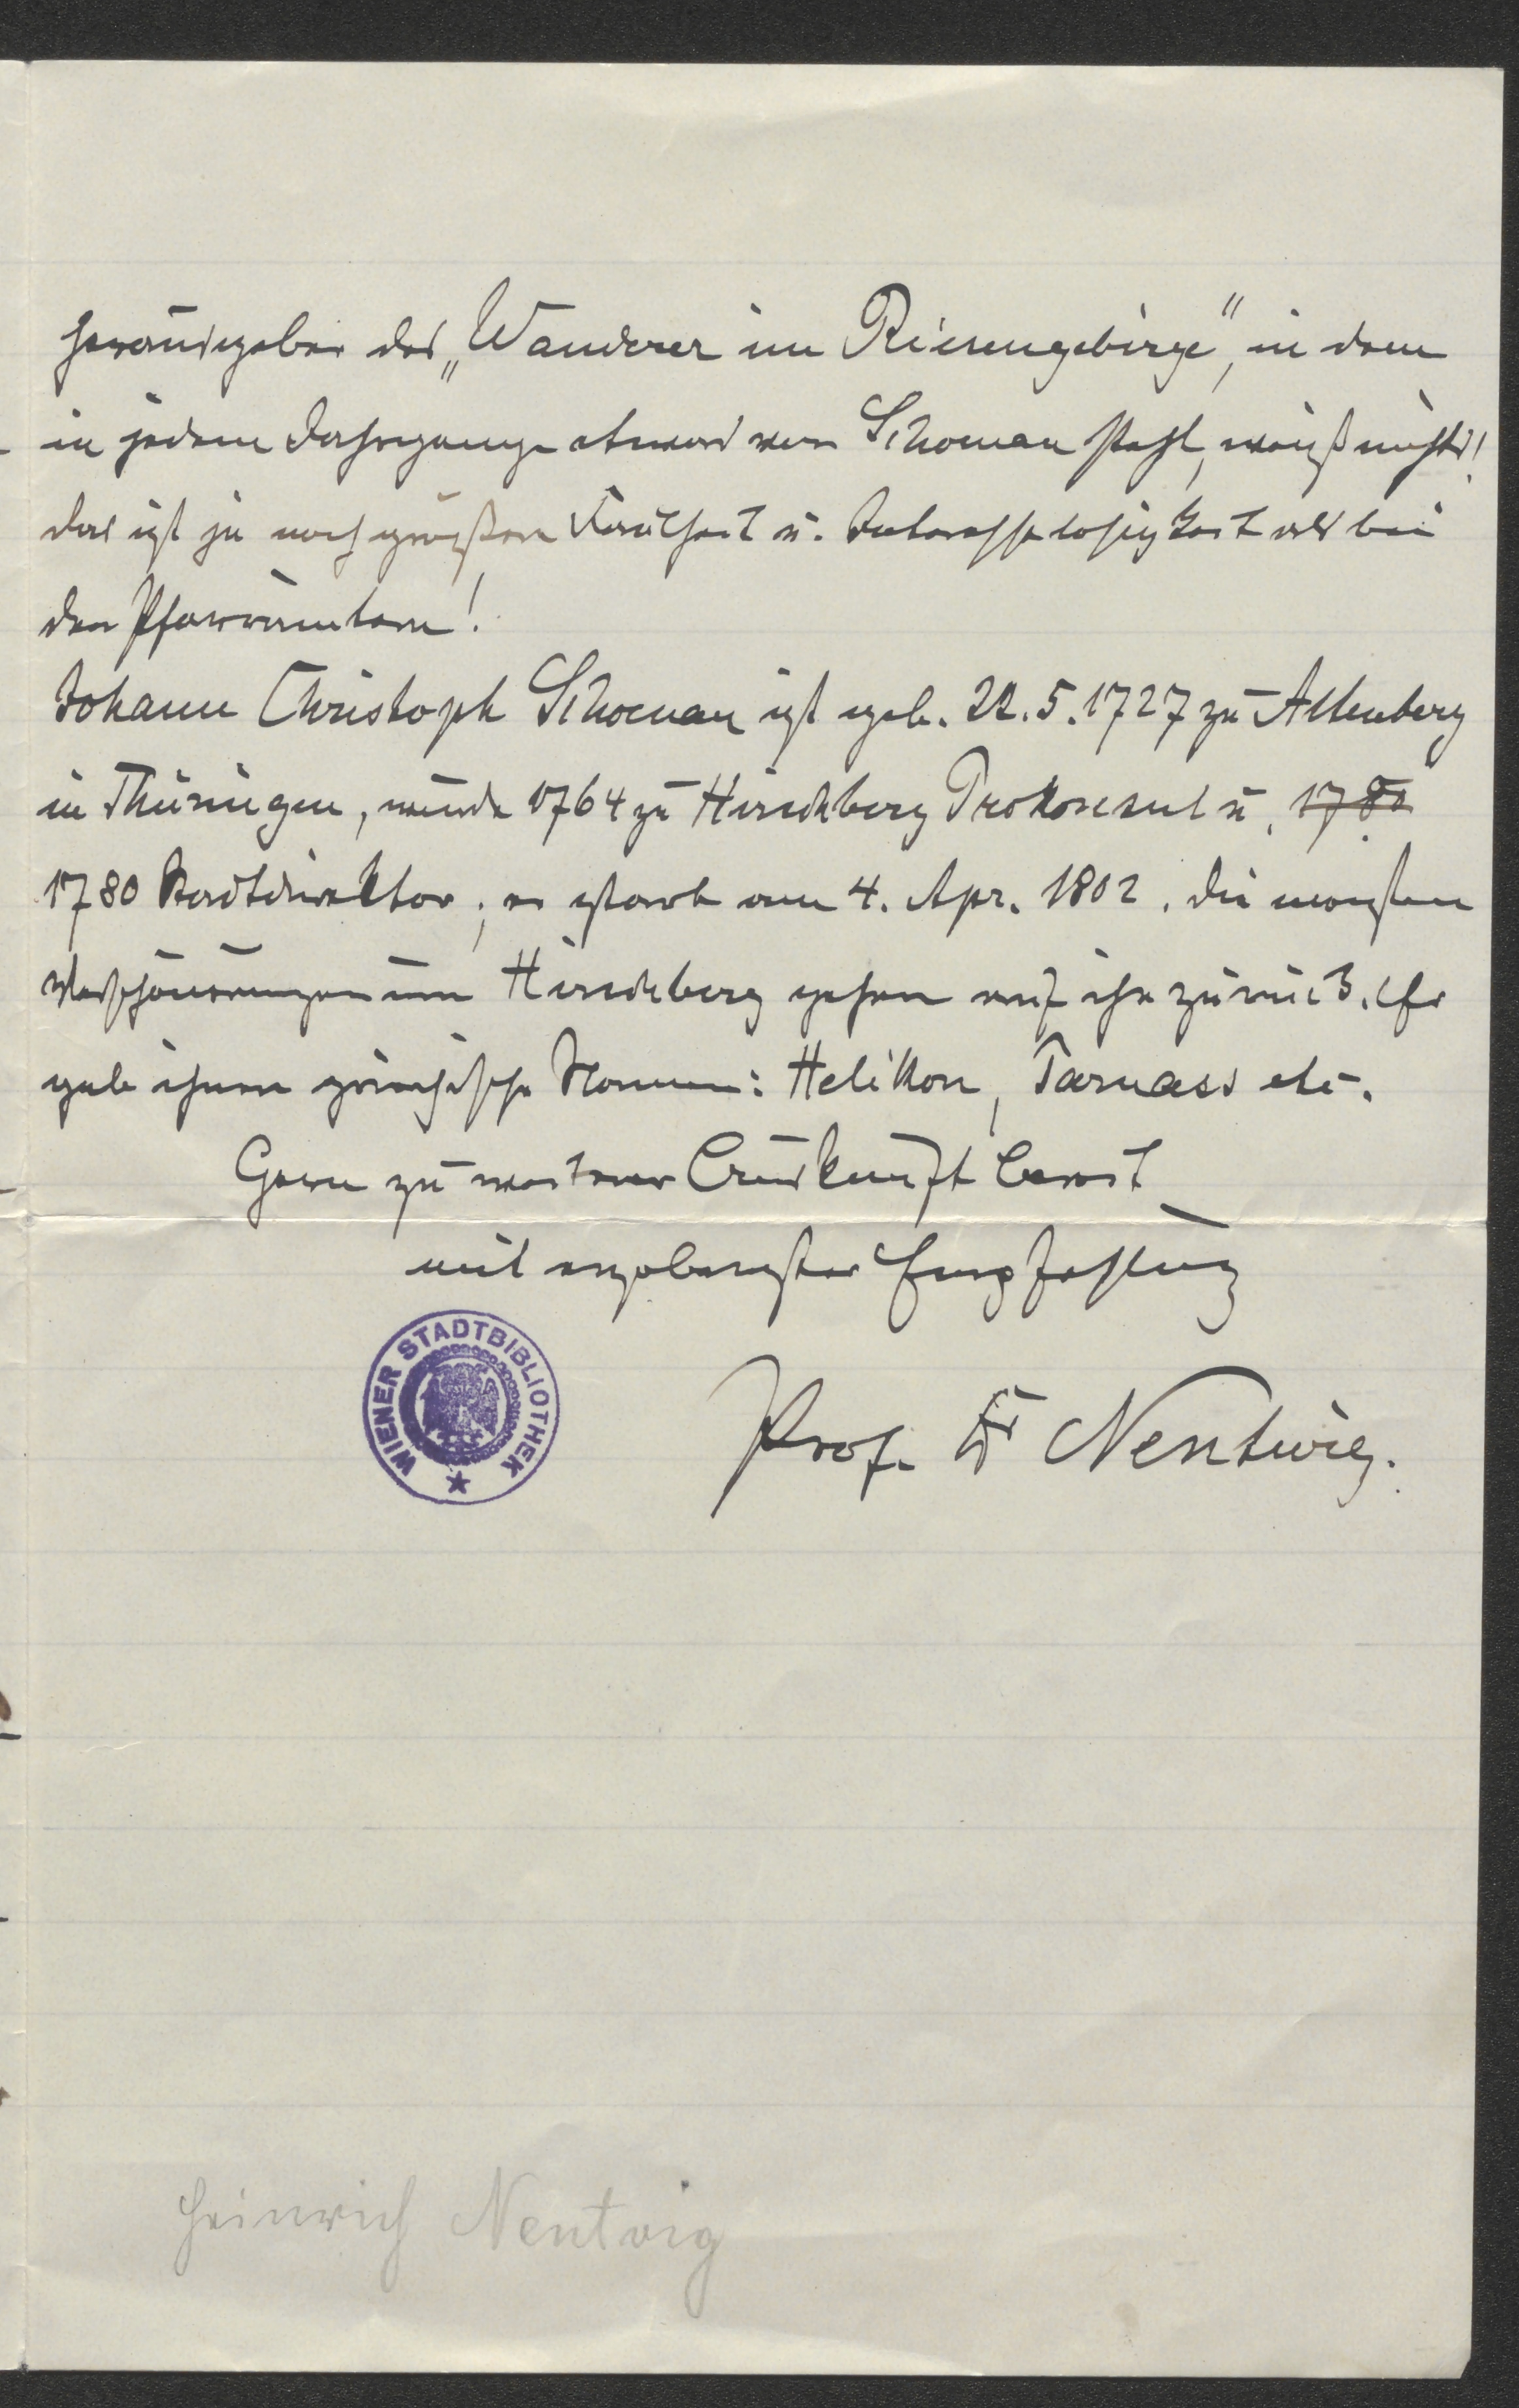 Herausgeber des „Wanderer im Riesengebirge“, in dem
in jedem Jahrgange etwas von Schoenau steht, weiß nichts!
das ist ja noch größere Faulheit u. Interesselosigkeit als bei
den Pfarrämtern!
Johann Christoph Schoenau ist geb. 22.5.1727 zu Altenberg
in Thüringen, wurde 1764 zu Hirschberg Prokonsul u. 1780
1780 Stadtdirektor; er starb am 4. Apr. 1802. Die meisten
Verschönerungen um Hirschberg gehen auf ihn zurück. Er
gab ihnen griechische Namen: Helikon, Parnass etc.
Gern zu weiterer Auskunft bereit
mit ergebenster Empfehlung
Prof. Dr Nentwig.
WIENER STADTBIBLIOTHEK
Heinrich Nentwig